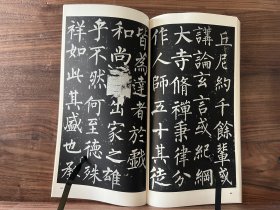 丘尼約千餘輩或
講論玄言或紀綱
大寺脩禪秉律分
作人師五十其徒
皆為達者於戲
和尚出家之雄
乎不然何至德殊
祥如此其盛也承